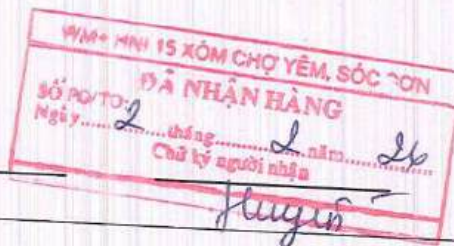 WM+ HNI 15 XÓM CHỢ YÊM, SÓC SƠN
ĐÃ NHẬN HÀNG
SỐ PO/TO:
Ngày 2 tháng 2 năm 26
Chữ ký người nhận
Huyền